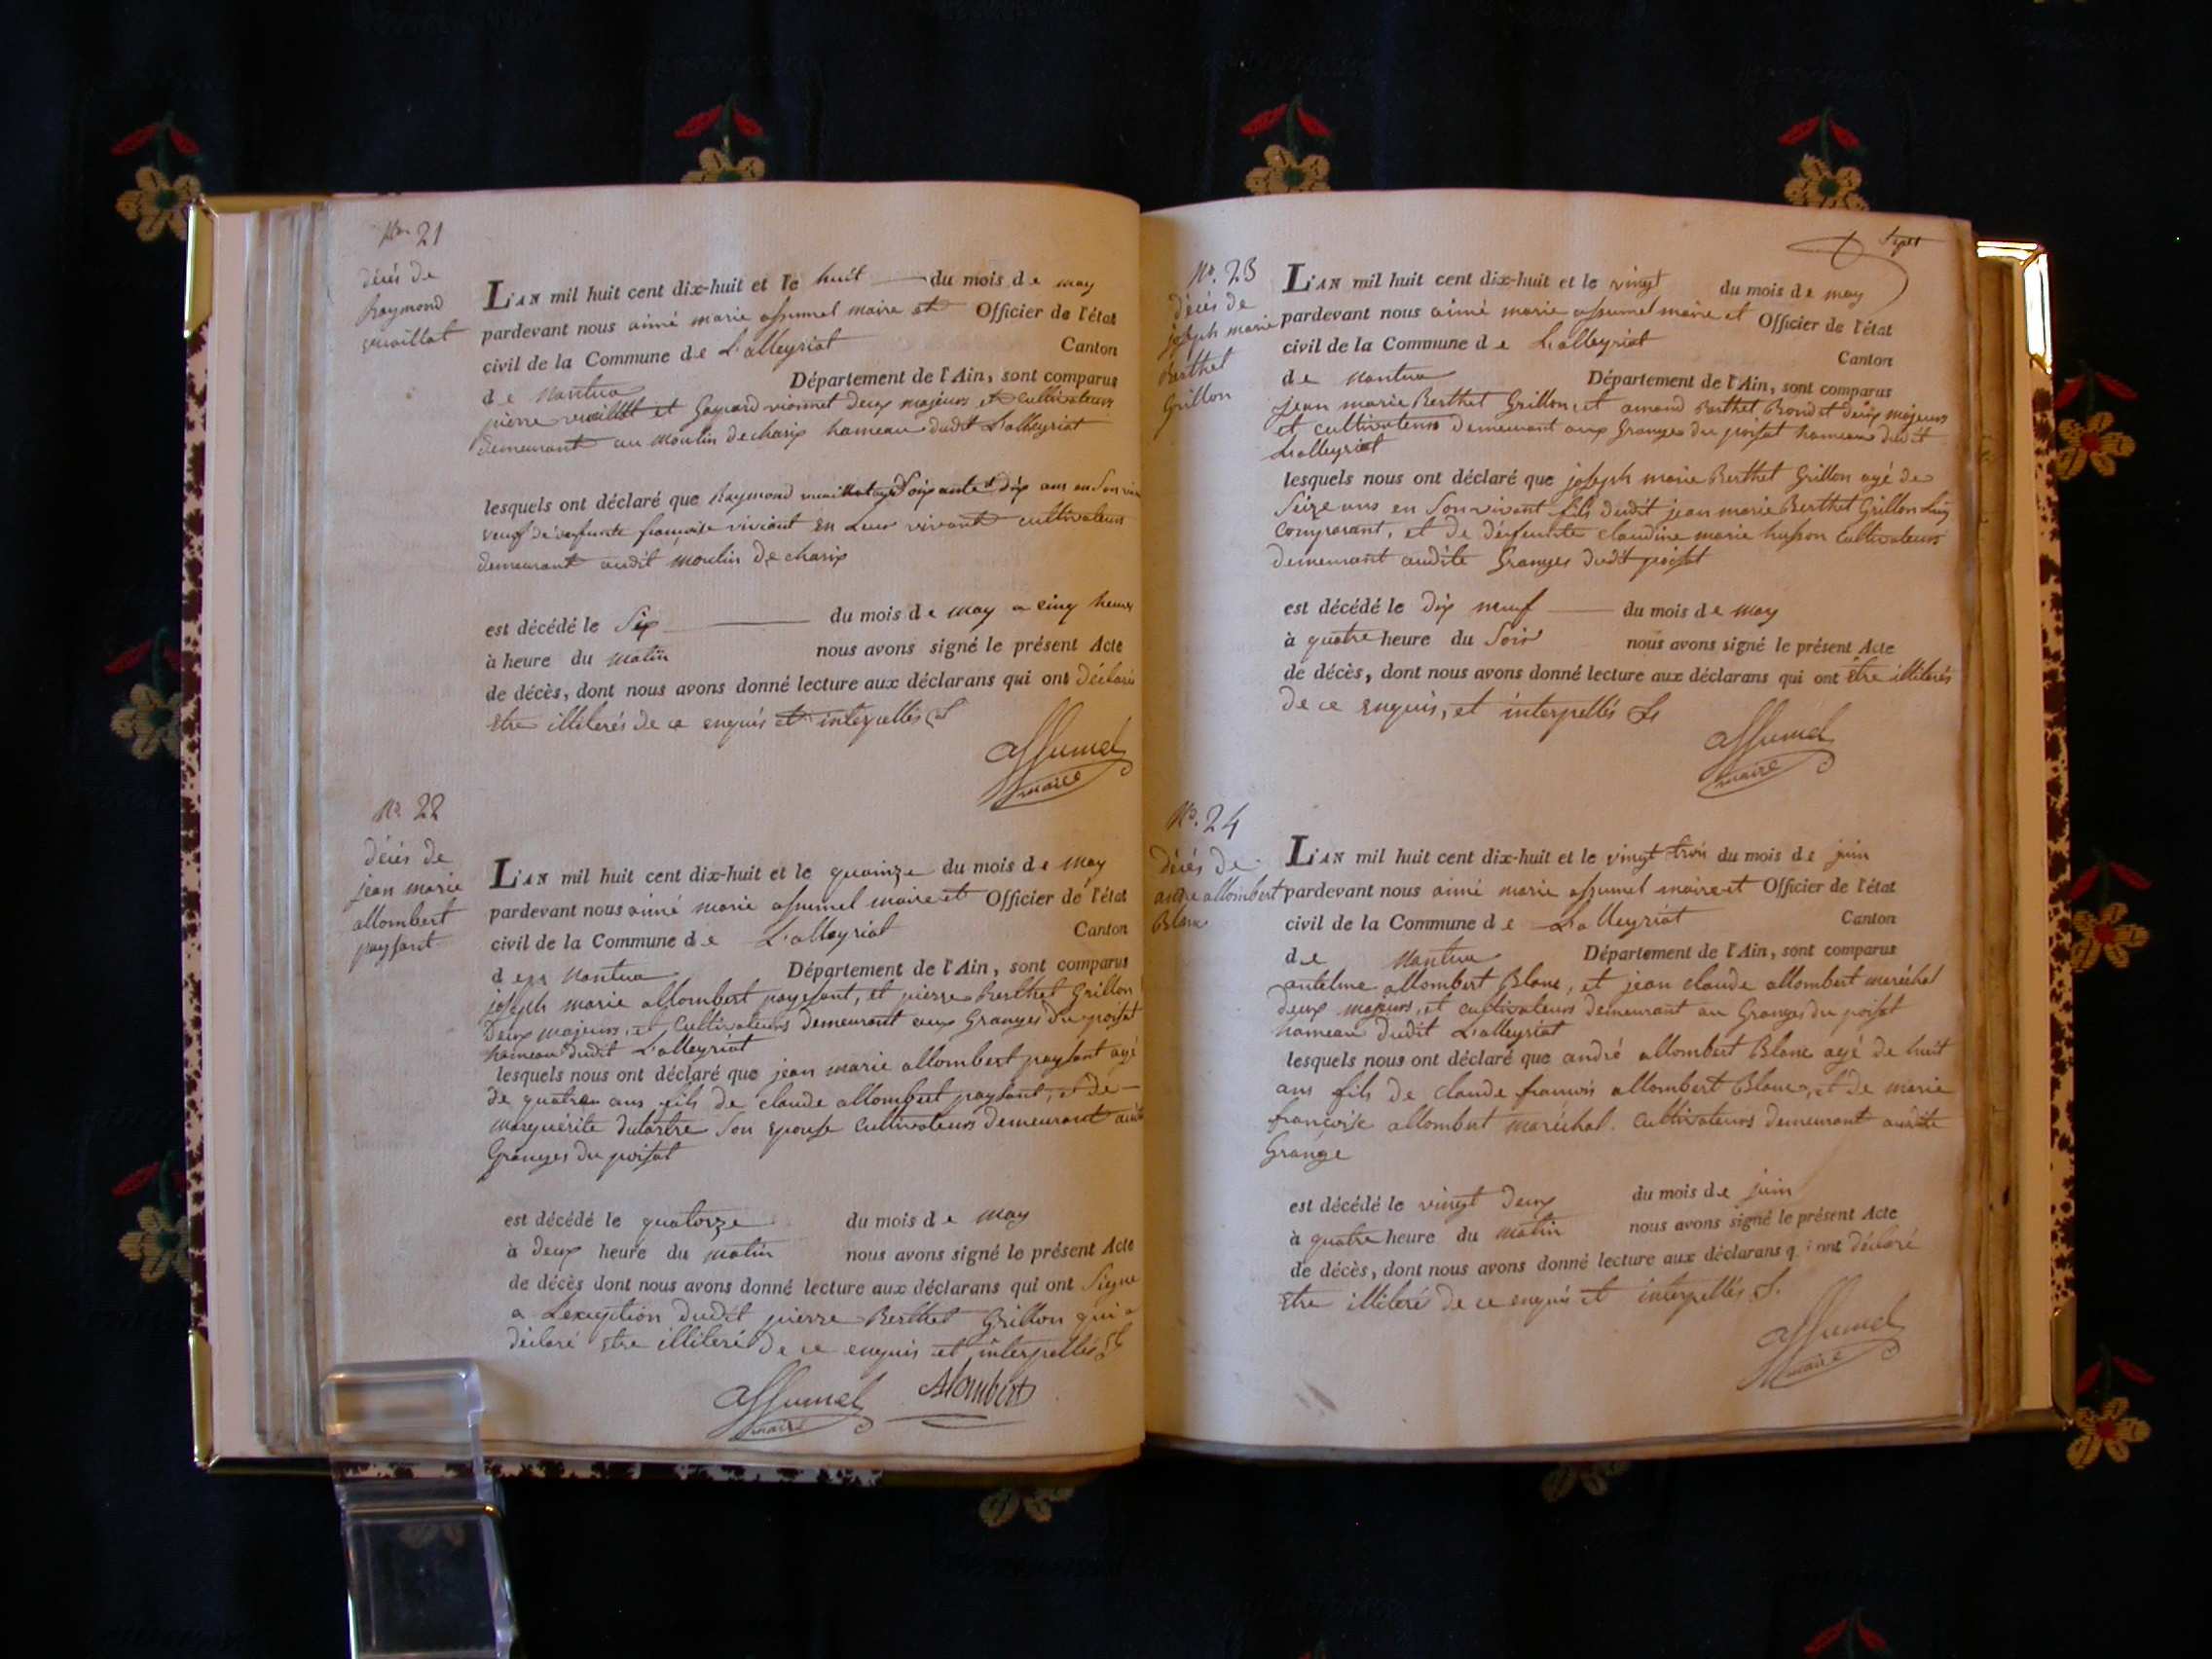 No. 21
décés de
Raymond
vuaillat
L'AN mil huit cent dix-huit et le huit du mois de may
pardevant nous aimé marie assumel maire et Officier de l'état
civil de la Commune de L'alleyriat Canton
de Nantua Département de l'Ain, sont comparus
pierre vuaillat et Gaspard vionnet deux majeurs et cultivateurs
demeurant au Moulin de charix hameau dudit L'alleyriat
lesquels ont déclaré que Raymond vuaillat agé Soixante et dix ans en Son
veuf de defunte françoise viviant en Leur vivant cultivateurs
demeurant audit moulin de charix
est décédé le Six du mois de may a cinq heures
à heure du matin nous avons signé le présent Acte
de décès, dont nous avons donné lecture aux déclarans qui ont déclaré
Etre illiterés de ce enquis et interpellés
assumel
maire
No. 22
décés de
jean marie
allombert
paysant
L'AN mil huit cent dix-huit et le quainze du mois de may
pardevant nous aimé marie assumel maire et Officier de l'état
civil de la Commune de L'alleyriat Canton
de Nantua Département de l'Ain, sont comparus
joseph marie allombert paysant, et pierre Berthet Grillon
Deux majeurs, et Cultivateurs demeurant aux Granges du poisat
hameau dudit L'alleyriat
lesquels nous ont déclaré que jean marie allombert paysant agé
de quatre ans fils de claude allombert paysant, et de
marguérite dutartre Son Epouse cultivateurs demeurant
Granges du poisat
est décédé le quatorze du mois de may
à deux heure du matin nous avons signé le présent Acte
de décès dont nous avons donné lecture aux déclarans qui ont Signé
a L'exception dudit pierre Berthet Grillon qui a
déclaré Etre illiteré de ce enquis et interpellés
assumel Alombert
maire
No. 23
décés de
joseph marie
Berthet
Grillon
L'AN mil huit cent dix-huit et le vingt du mois de may
pardevant nous aimé marie assumel maire et Officier de l'état
civil de la Commune de L'alleyriat Canton
de Nantua Département de l'Ain, sont comparus
jean marie Berthet Grillon, et amand Berthet Bondet deux majeurs
et cultivateurs demeurant aux Granges du poisat hameau dudit
L'alleyriat
lesquels nous ont déclaré que joseph marie Berthet Grillon agé de
Seize ans en Son vivant fils dudit jean marie Berthet Grillon
comparant, et de défunte claudine marie husson Cultivateurs
demeurant audite Granges dudit poisat
est décédé le dix neuf du mois de may
à quatre heure du Soir nous avons signé le présent Acte
de décès, dont nous avons donné lecture aux déclarans qui ont être illiterés
de ce enquis, et interpellés
assumel
maire
No. 24
décés de
andre allombert
Blanc
L'AN mil huit cent dix-huit et le vingt trois du mois de juin
pardevant nous aimé marie assumel maire et Officier de l'état
civil de la Commune de L'alleyriat Canton
de Nantua Département de l'Ain, sont comparus
antelme allombert Blanc, et jean claude allombert maréchal
deux majeurs, et cultivateurs demeurant au Granges du poisat
hameau dudit L'alleyriat
lesquels nous ont déclaré que andré allombert Blanc agé de huit
ans fils de claude francois allombert Blanc, et de marie
françoise allombert maréchal. cultivateurs demeurant audite
Grange
est décédé le vingt deux du mois de juin
à quatre heure du matin nous avons signé le présent Acte
de décès, dont nous avons donné lecture aux déclarans qui ont déclaré
Etre illiteré de ce enquis et interpellés
assumel
maire